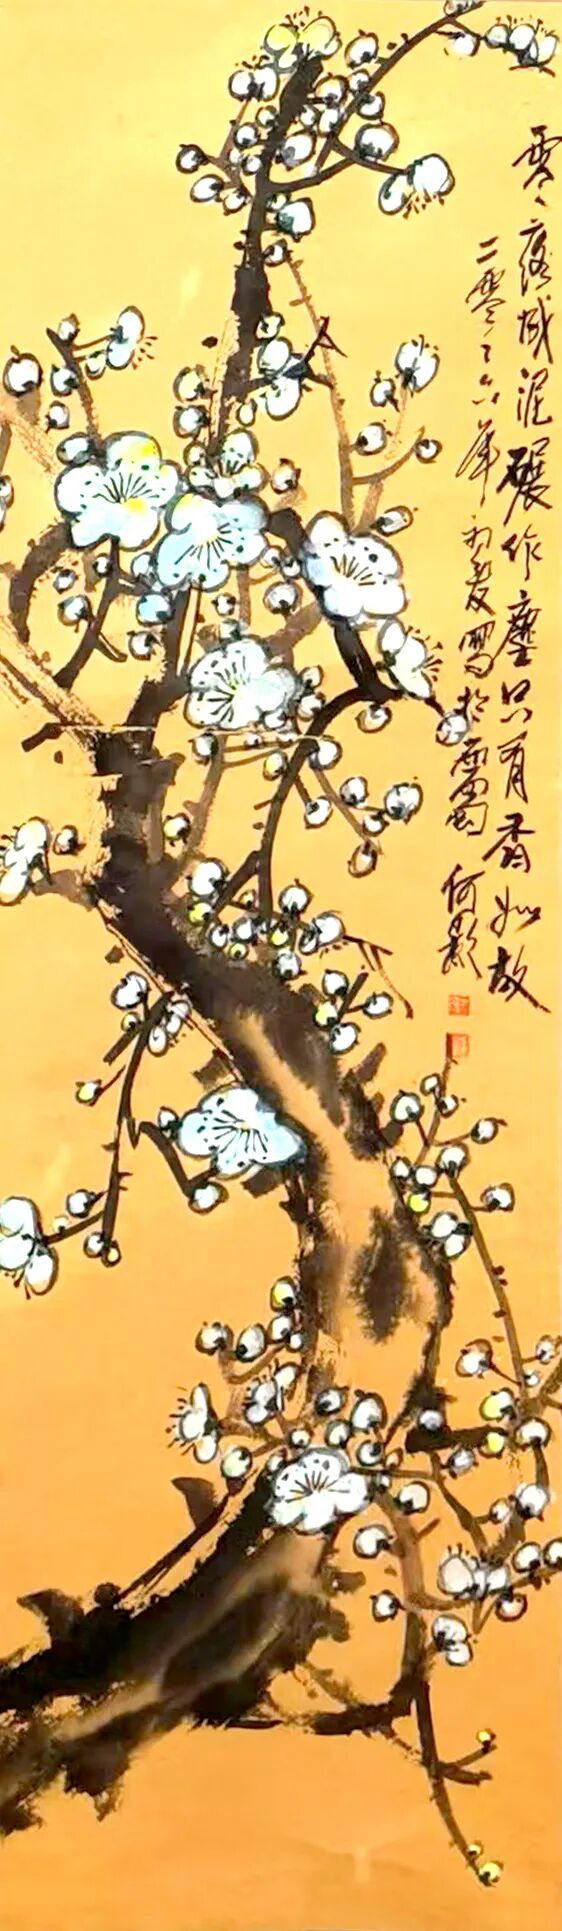 零〻落成泥碾作塵只有香如故
二零零六年初夏寫於西蜀何影